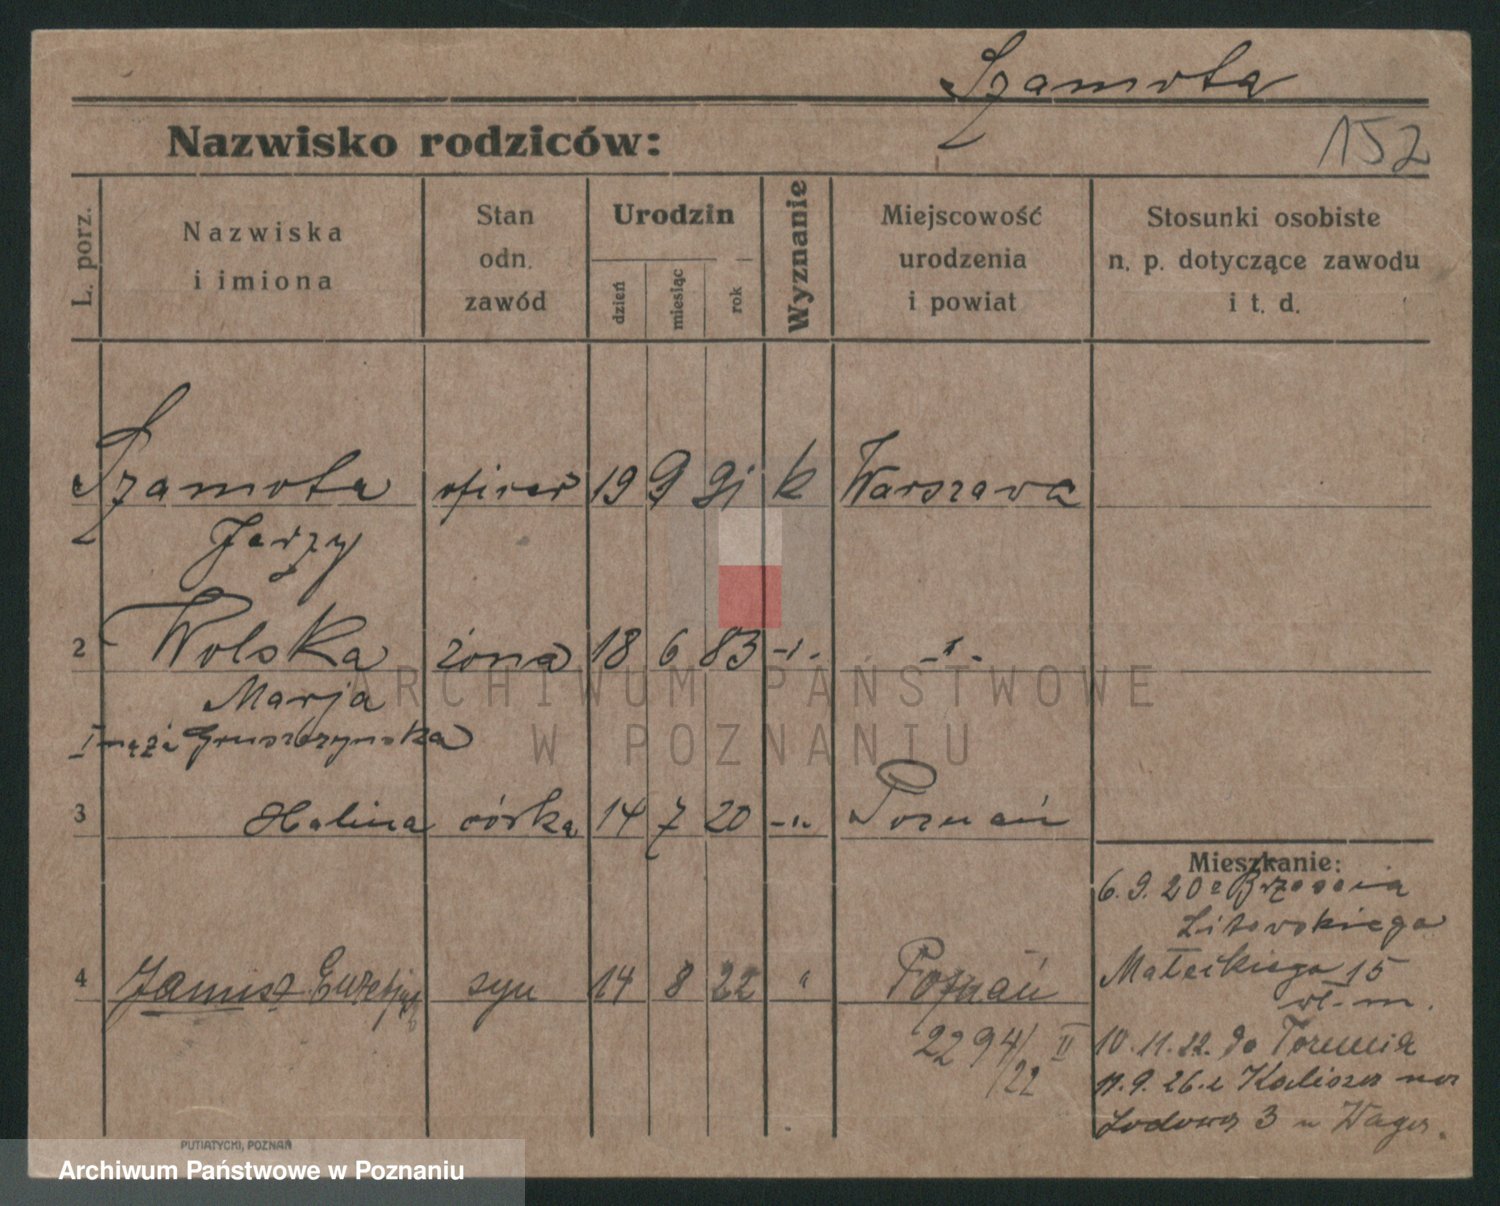 Szamota
Nazwisko rodziców:
152
L. porz.
Nazwiska
i imiona
Stan
odn.
zawód
Urodzin
dzień
miesiąc
rok
Wyznanie
Miejscowość
urodzenia
i powiat
Stosunki osobiste
n. p. dotyczące zawodu
i t. d.
Szamota oficer 19 9 91 k Warszawa
Jerzy
2 Wolska żona 18 6 83 -"- -"-
Marja
I męża Gruszczynska
3 Halina córka 14 7 20 -"- Poznań
Mieszkanie:
6.9.20 z Brześcia
Litewskiego
Małeckiego 15
wł. m.
4 Janusz syn 14 8 22 " Poznań
2294/22 II
10.11.22. do Torunia
11.9.26. z Kalisza na
3 u
PUTIATYCKI, POZNAŃ
ARCHIWUM PAŃSTWOWE
W POZNANIU
Archiwum Państwowe w Poznaniu